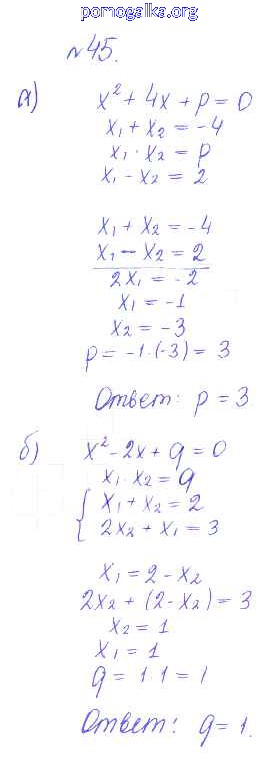 pomogalka.org
№45.
а) x² + 4x + p = 0
x₁ + x₂ = -4
x₁ · x₂ = p
x₁ - x₂ = 2
x₁ + x₂ = -4
x₁ - x₂ = 2
2x₁ = -2
x₁ = -1
x₂ = -3
p = -1·(-3) = 3
Ответ: p = 3
б) x² - 2x + q = 0
x₁ · x₂ = q
{ x₁ + x₂ = 2
2x₂ + x₁ = 3
x₁ = 2 - x₂
2x₂ + (2 - x₂) = 3
x₂ = 1
x₁ = 1
q = 1·1 = 1
Ответ: q = 1.